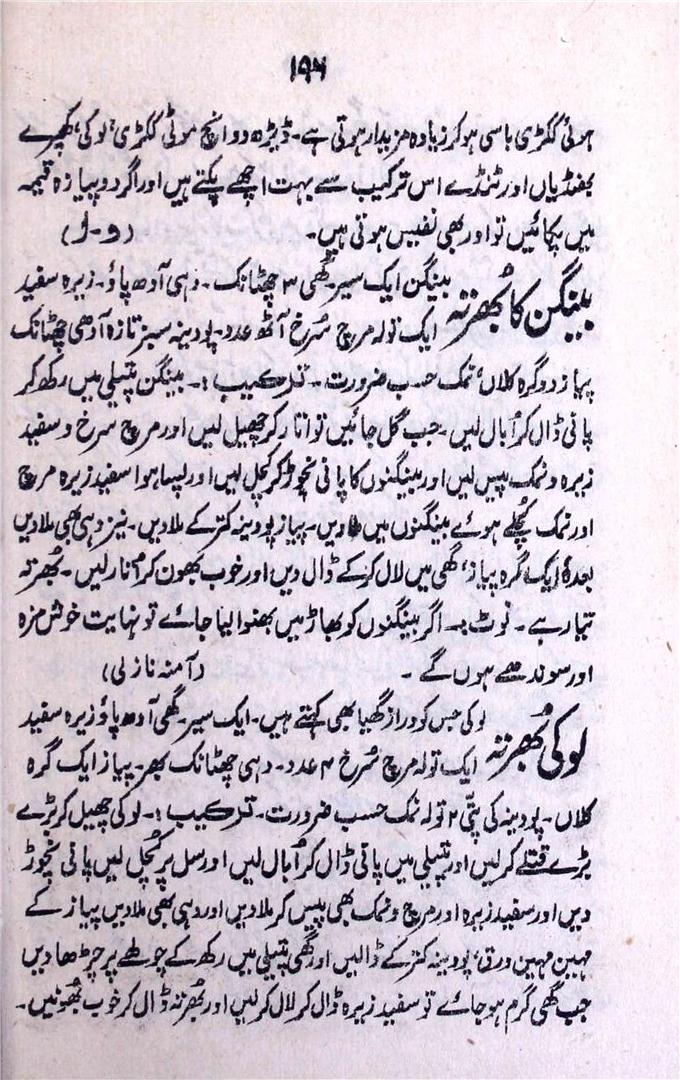 ۱۹۵
ہوئی ککڑی باسی ہو کر زیادہ مزیدار ہوتی ہے۔ ڈیڑھ دو انچ موٹی ککڑی، لوکی، کھیرے
بھنڈیاں اور ٹنڈے اس ترکیب سے بہت اچھے پکتے ہیں اور اگر دو پیازہ قیمہ
میں پکائیں تو اور بھی نفیس ہوتی ہیں۔ (و۔ا)
بینگن کا بُھرتہ
بینگن ایک سیر۔ گھی ۳ چھٹانک۔ دہی آدھ پاؤ۔ زیرہ سفید
ایک تولہ مرچ سُرخ آٹھ عدد۔ پودینہ سبز تازہ آدھی چھٹانک
پیاز دو گرہ کلاں، نمک حسب ضرورت۔ ترکیب :۔ بینگن پتیلی میں رکھ کر
پانی ڈال کر اُبال لیں۔ جب گل جائیں تو اتار کر چھیل لیں اور مرچ سرخ و سفید
زیرہ و نمک پیس لیں اور بینگنوں کا پانی نچوڑ کر کچل لیں اور پسا ہوا سفید زیرہ مرچ
اور نمک کچلے ہوئے بینگنوں میں ملادیں۔ پیاز پودینہ کتر کے ملادیں۔ نیز دہی بھی ملادیں
بعدہٗ ایک گرہ پیاز، گھی میں لال کر کے ڈال دیں اور خوب بھون کر اتار لیں۔ بُھرتہ
تیار ہے۔ نوٹ :۔ اگر بینگنوں کو بھاڑ میں بھنوا لیا جائے تو نہایت خوش مزہ
اور سوندھے ہوں گے۔ (آمنہ نازلی)
لوکی بُھرتہ
لوکی جس کو دراز گھیا بھی کہتے ہیں۔ ایک سیر۔ گھی آدھ پاؤ زیرہ سفید
ایک تولہ مرچ سُرخ ۴ عدد۔ دہی چھٹانک بھر۔ پیاز ایک گرہ
کلاں۔ پودینہ کی پتّی ۲ تولہ نمک حسب ضرورت۔ ترکیب :۔ لوکی چھیل کر بڑے
بڑے قتلے کر لیں اور پتیلی میں پانی ڈال کر اُبال لیں اور سل پر کُچل لیں پانی نچوڑ
دیں اور سفید زیرہ اور مرچ و نمک بھی پیس کر ملادیں اور دہی بھی ملادیں پیاز کے
مہین مہین ورق، پودینہ کتر کے ڈالیں اور گھی پتیلی میں رکھ کے چولھے پر چڑھادیں
جب گھی گرم ہو جائے تو سفید زیرہ ڈال کر لال کر لیں اور بُھرتہ ڈال کر خوب بُھونیں۔